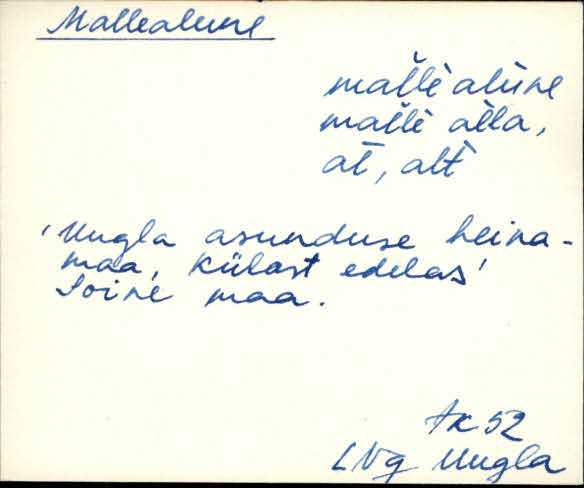 Mallealune
mal̆l̀è alùne
mal̆l̀è al̀l̀a,
al̄, al̄t̀
'Uugla asunduse heina-
maa, külast edelas'
Soine maa.
AK 52
LNg Uugla